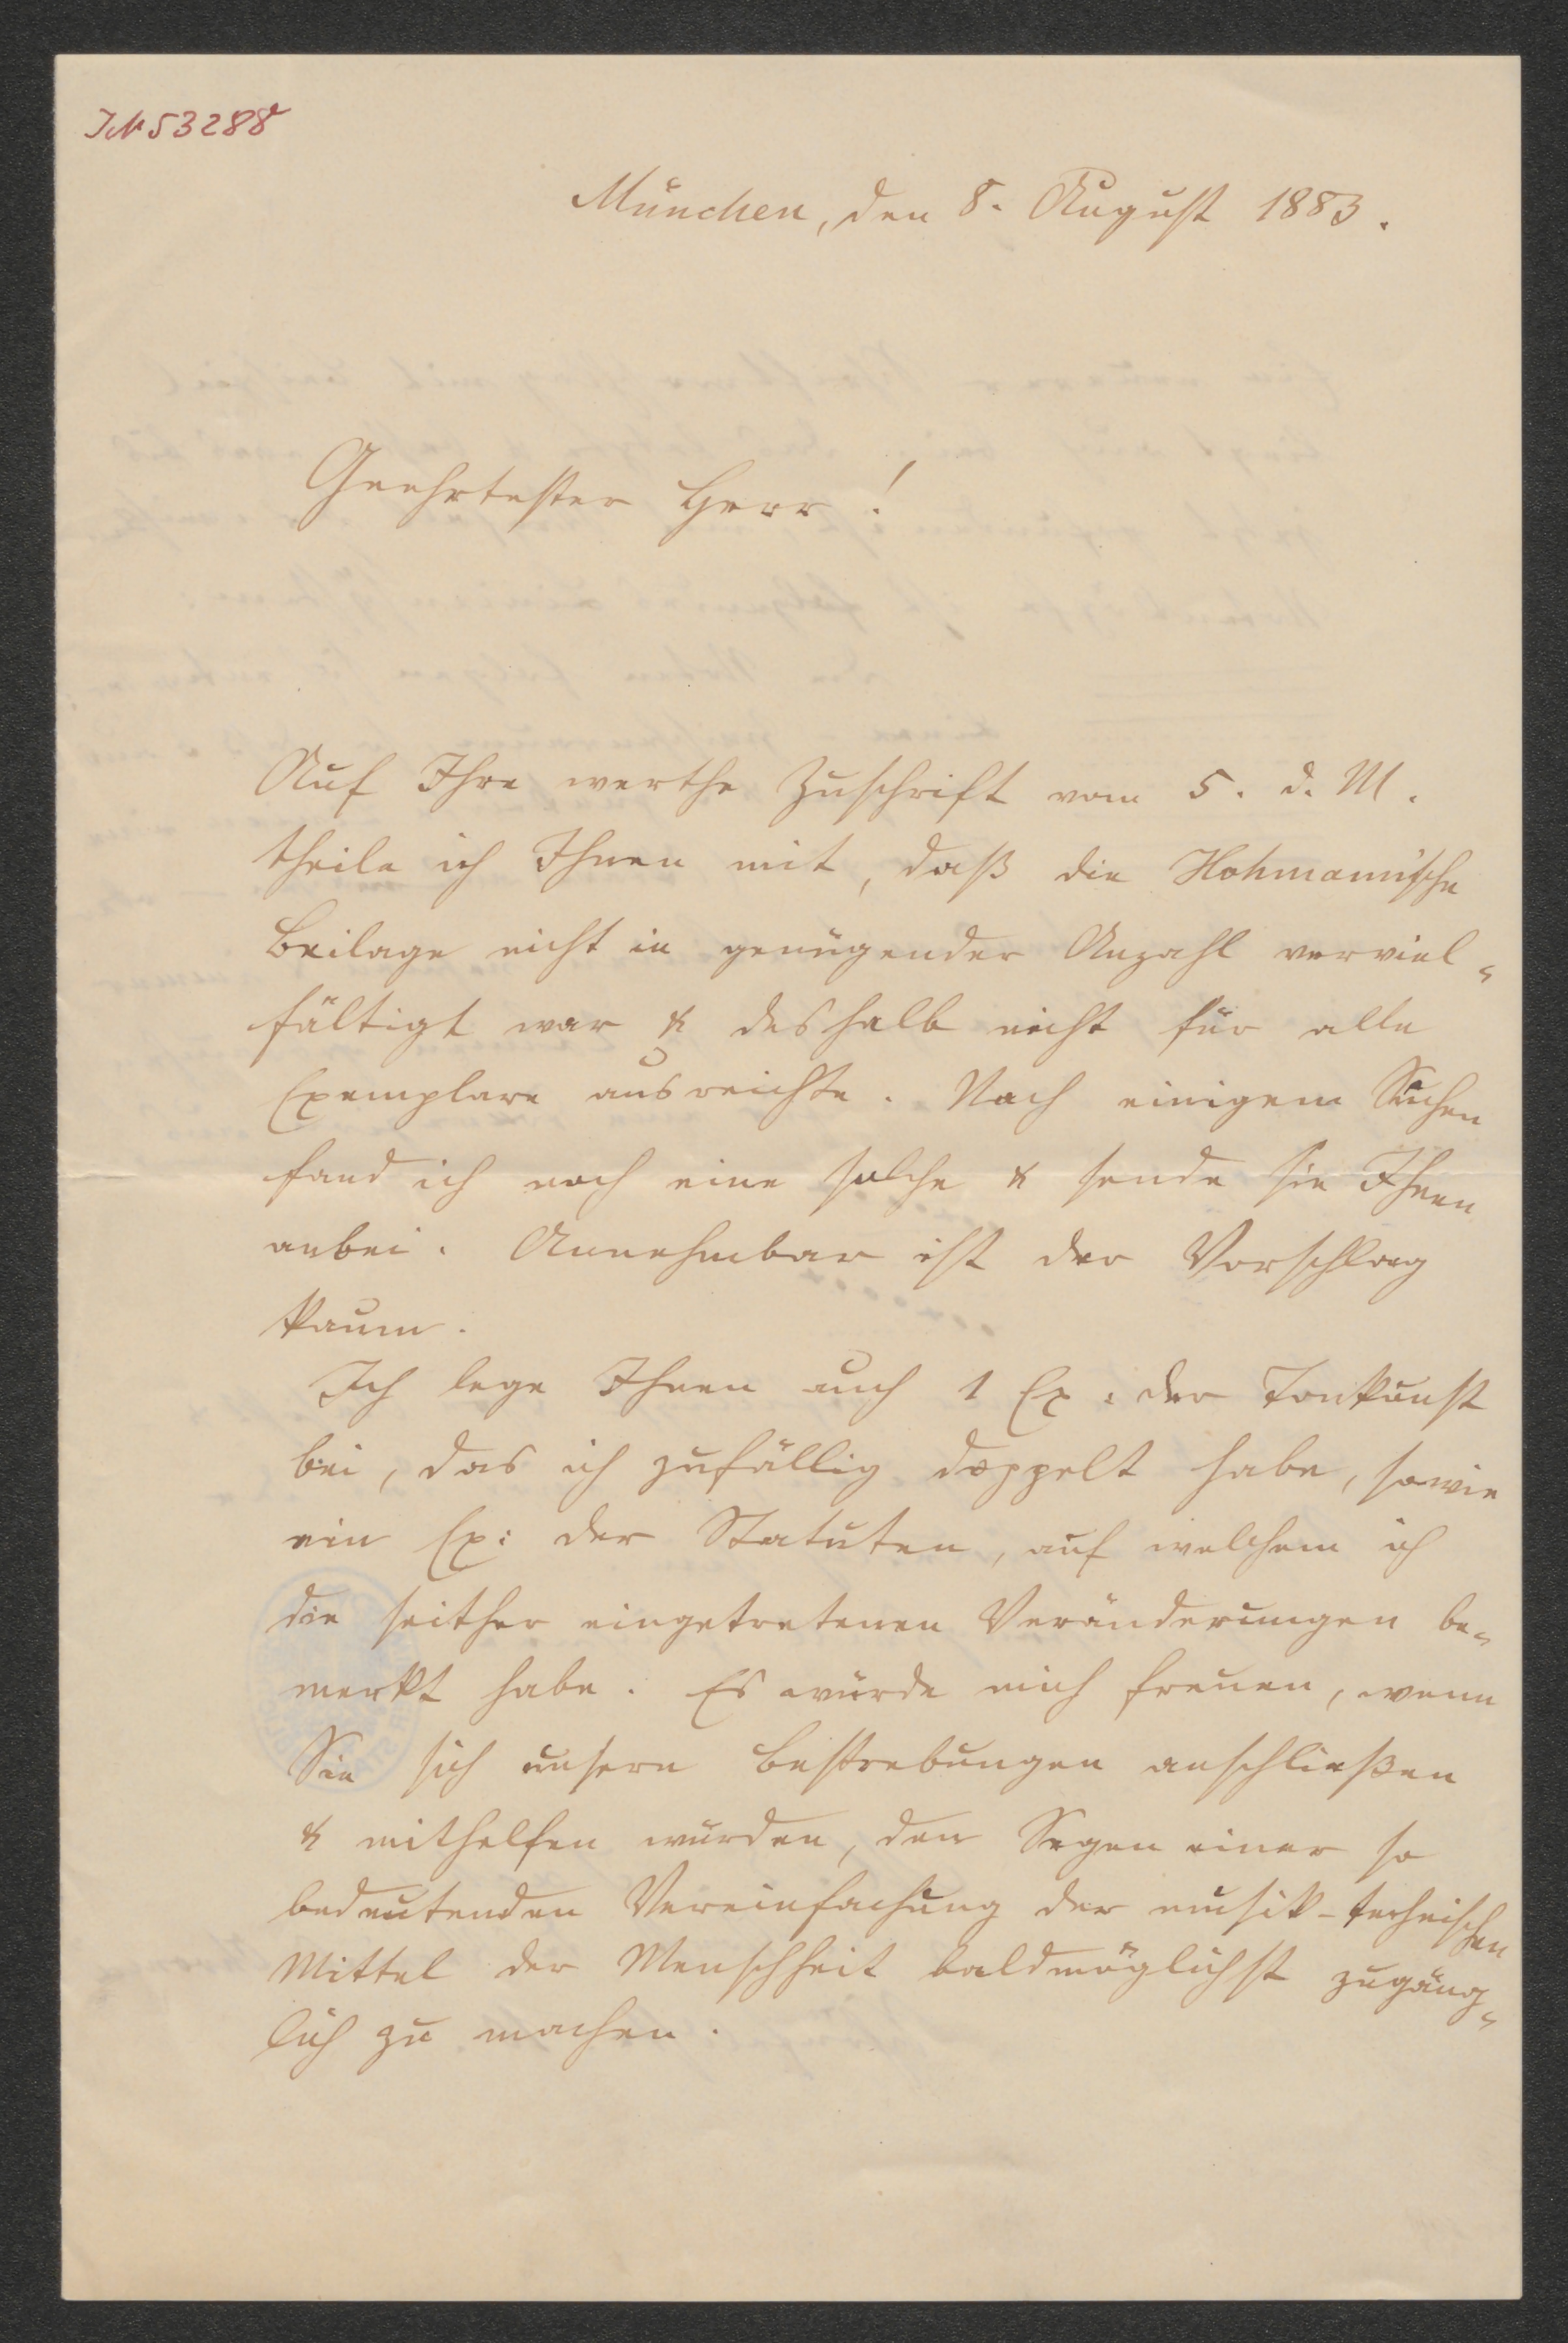 IN 53288
München, den 8. August 1883.
Geehrtester Herr!
Auf Ihre werthe Zuschrift vom 5. d. M.
theile ich Ihnen mit, daß die Hohmann'sche
Beilage nicht in genügender Anzahl verviel-
fältigt war & deshalb nicht für alle
Exemplare ausreichte. Nach einigem Suchen
fand ich noch eine solche & sende sie Ihnen
anbei. Annehmbar ist der Vorschlag
kaum.
Ich lege Ihnen auch 1 Ex. der Tonkunst
bei, das ich zufällig doppelt habe, sowie
ein Ex: der Statuten, auf welchem ich
die seither eingetretenen Veränderungen be-
merkt habe. Es würde mich freuen, wenn
Sie sich unsern Bestrebungen anschließen
& mithelfen würden, den Segen einer so
bedeutenden Vereinfachung der musik-technischen
Mittel der Menschheit baldmöglichst zugäng-
lich zu machen.